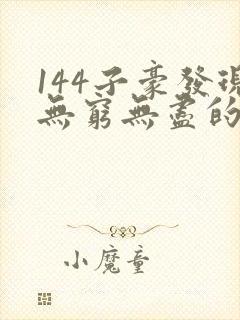 144子豪發現
無窮無盡的
小魔童